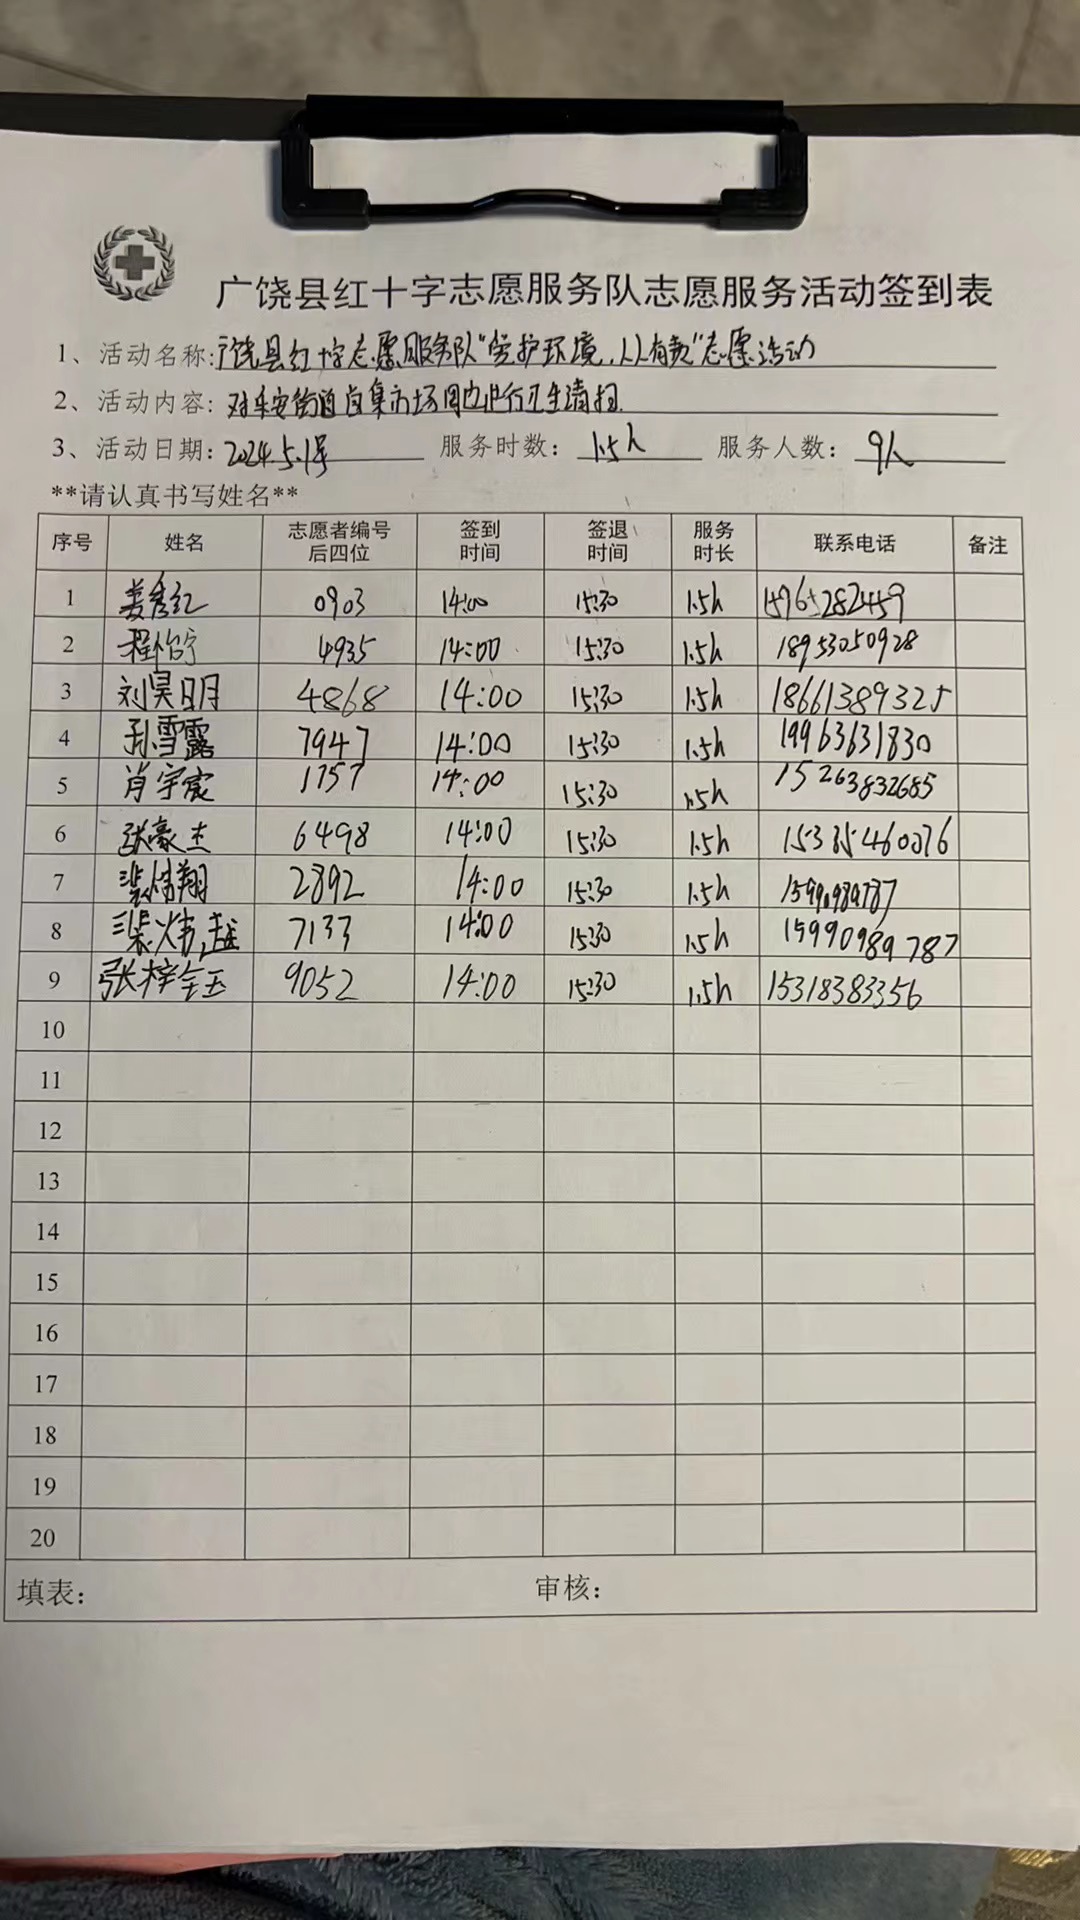 广饶县红十字志愿服务队志愿服务活动签到表
1、活动名称:广饶县红十字志愿服务队"爱护环境,人人有责"志愿活动
2、活动内容:对乐安街道集市场周边进行卫生清扫.
3、活动日期:2024.5.1号 服务时数:1.5h 服务人数:9人
**请认真书写姓名**
序号 姓名 志愿者编号后四位 签到时间 签退时间 服务时长 联系电话 备注
1 姜秀红 0903 14:00 15:30 1.5h 15965282459
2 程怡宁 4935 14:00 15:30 1.5h 18953050928
3 刘昊日月 4868 14:00 15:30 1.5h 18661389325
4 孙雪露 7947 14:00 15:30 1.5h 19963631830
5 肖宇宸 1757 14:00 15:30 1.5h 15263832685
6 张豪杰 6498 14:00 15:30 1.5h 15385460076
7 翔 2892 14:00 15:30 1.5h
8 7133 14:00 15:30 1.5h 15990989787
9 张梓金玉 9052 14:00 15:30 1.5h 15318383356
10
11
12
13
14
15
16
17
18
19
20
填表: 审核: